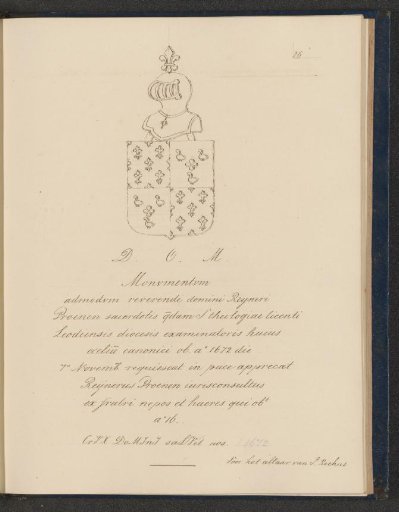 26
D. O. M
Monumentum
admodum reverende domini Reyneri
Proenen sacerdotis qdam S. theologiae licenti
Leodiensis diocesis examinatoris huius
eccles canonici ob. a° 1672 die
7a Novemb. requiescat in pace apprecat
Reynerus Proenen iurisconsultus
ex fratri nepos et haeres qui obt
a° 16.
CrVX DoMInI saLVet nos. 1672
Voor het altaar van St Rochus